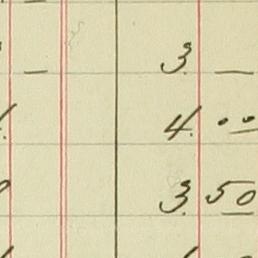 3. —
4. ..
3. 50